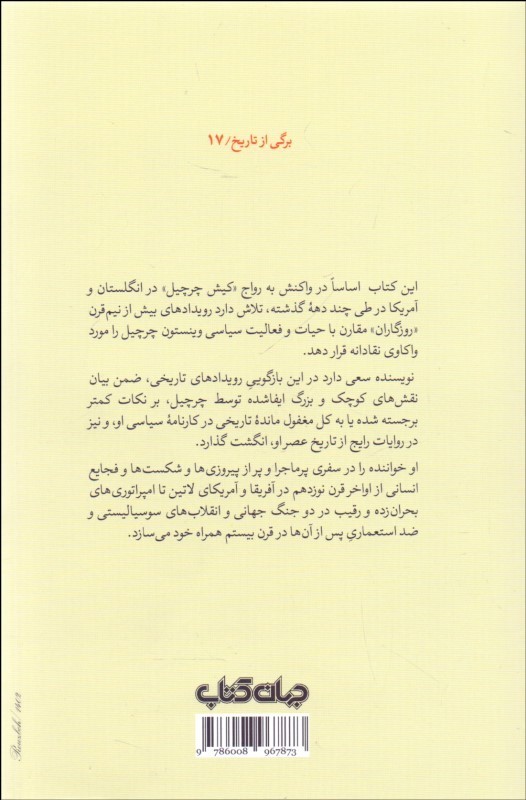 برگی از تاریخ/ ۱۷
این کتاب اساساً در واکنش به رواج «کیش چرچیل» در انگلستان و
آمریکا در طی چند دههٔ گذشته، تلاش دارد رویدادهای بیش از نیم‌قرن
«روزگاران» مقارن با حیات و فعالیت سیاسی وینستون چرچیل را مورد
واکاوی نقادانه قرار دهد.
نویسنده سعی دارد در این بازگوییِ رویدادهای تاریخی، ضمن بیان
نقش‌های کوچک و بزرگ ایفاشده توسط چرچیل، بر نکات کمتر
برجسته شده یا به کل مغفول ماندهٔ تاریخی در کارنامهٔ سیاسی او، و نیز
در روایات رایج از تاریخ عصر او، انگشت گذارد.
او خواننده را در سفری پرماجرا و پر از پیروزی‌ها و شکست‌ها و فجایع
انسانی از اواخر قرن نوزدهم در آفریقا و آمریکای لاتین تا امپراتوری‌های
بحران‌زده و رقیب در دو جنگ جهانی و انقلاب‌های سوسیالیستی و
ضد استعماریِ پس از آن‌ها در قرن بیستم همراه خود می‌سازد.
جهان کتاب
9 786008 967873